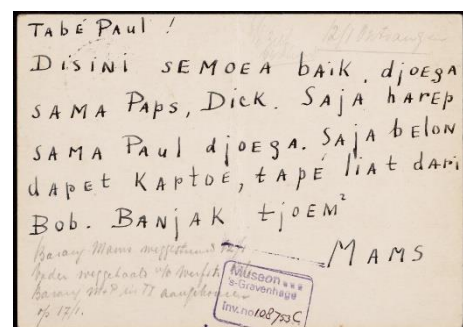 TABÉ PAUL !
12/1 Ontvangen
DISINI SEMOEA bAIK, djOEgA
SAMA PAPS, DICK. SAJA hAREP
SAMA PAUL djOEgA. SAJA bELON
dAPEt KAPtOE, tAPÉ lIAt dARi
BOb. BANJAK tjOEM²
MAMS
Barang Mams weggestuurd 12/1
Barang M+P in TJ aangekomen
op 17/1.
Museon
's-Gravenhage
Inv.no 108753C